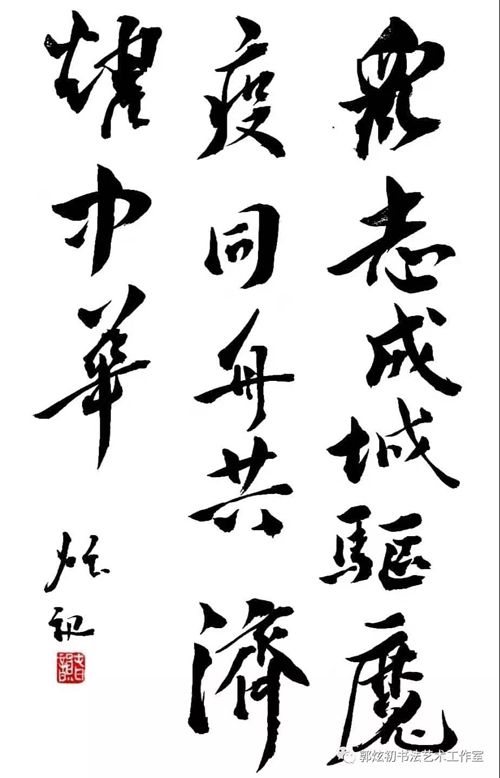 眾志成城驅魔
疫同舟共濟
耀中華
炫初
郭炫初书法艺术工作室